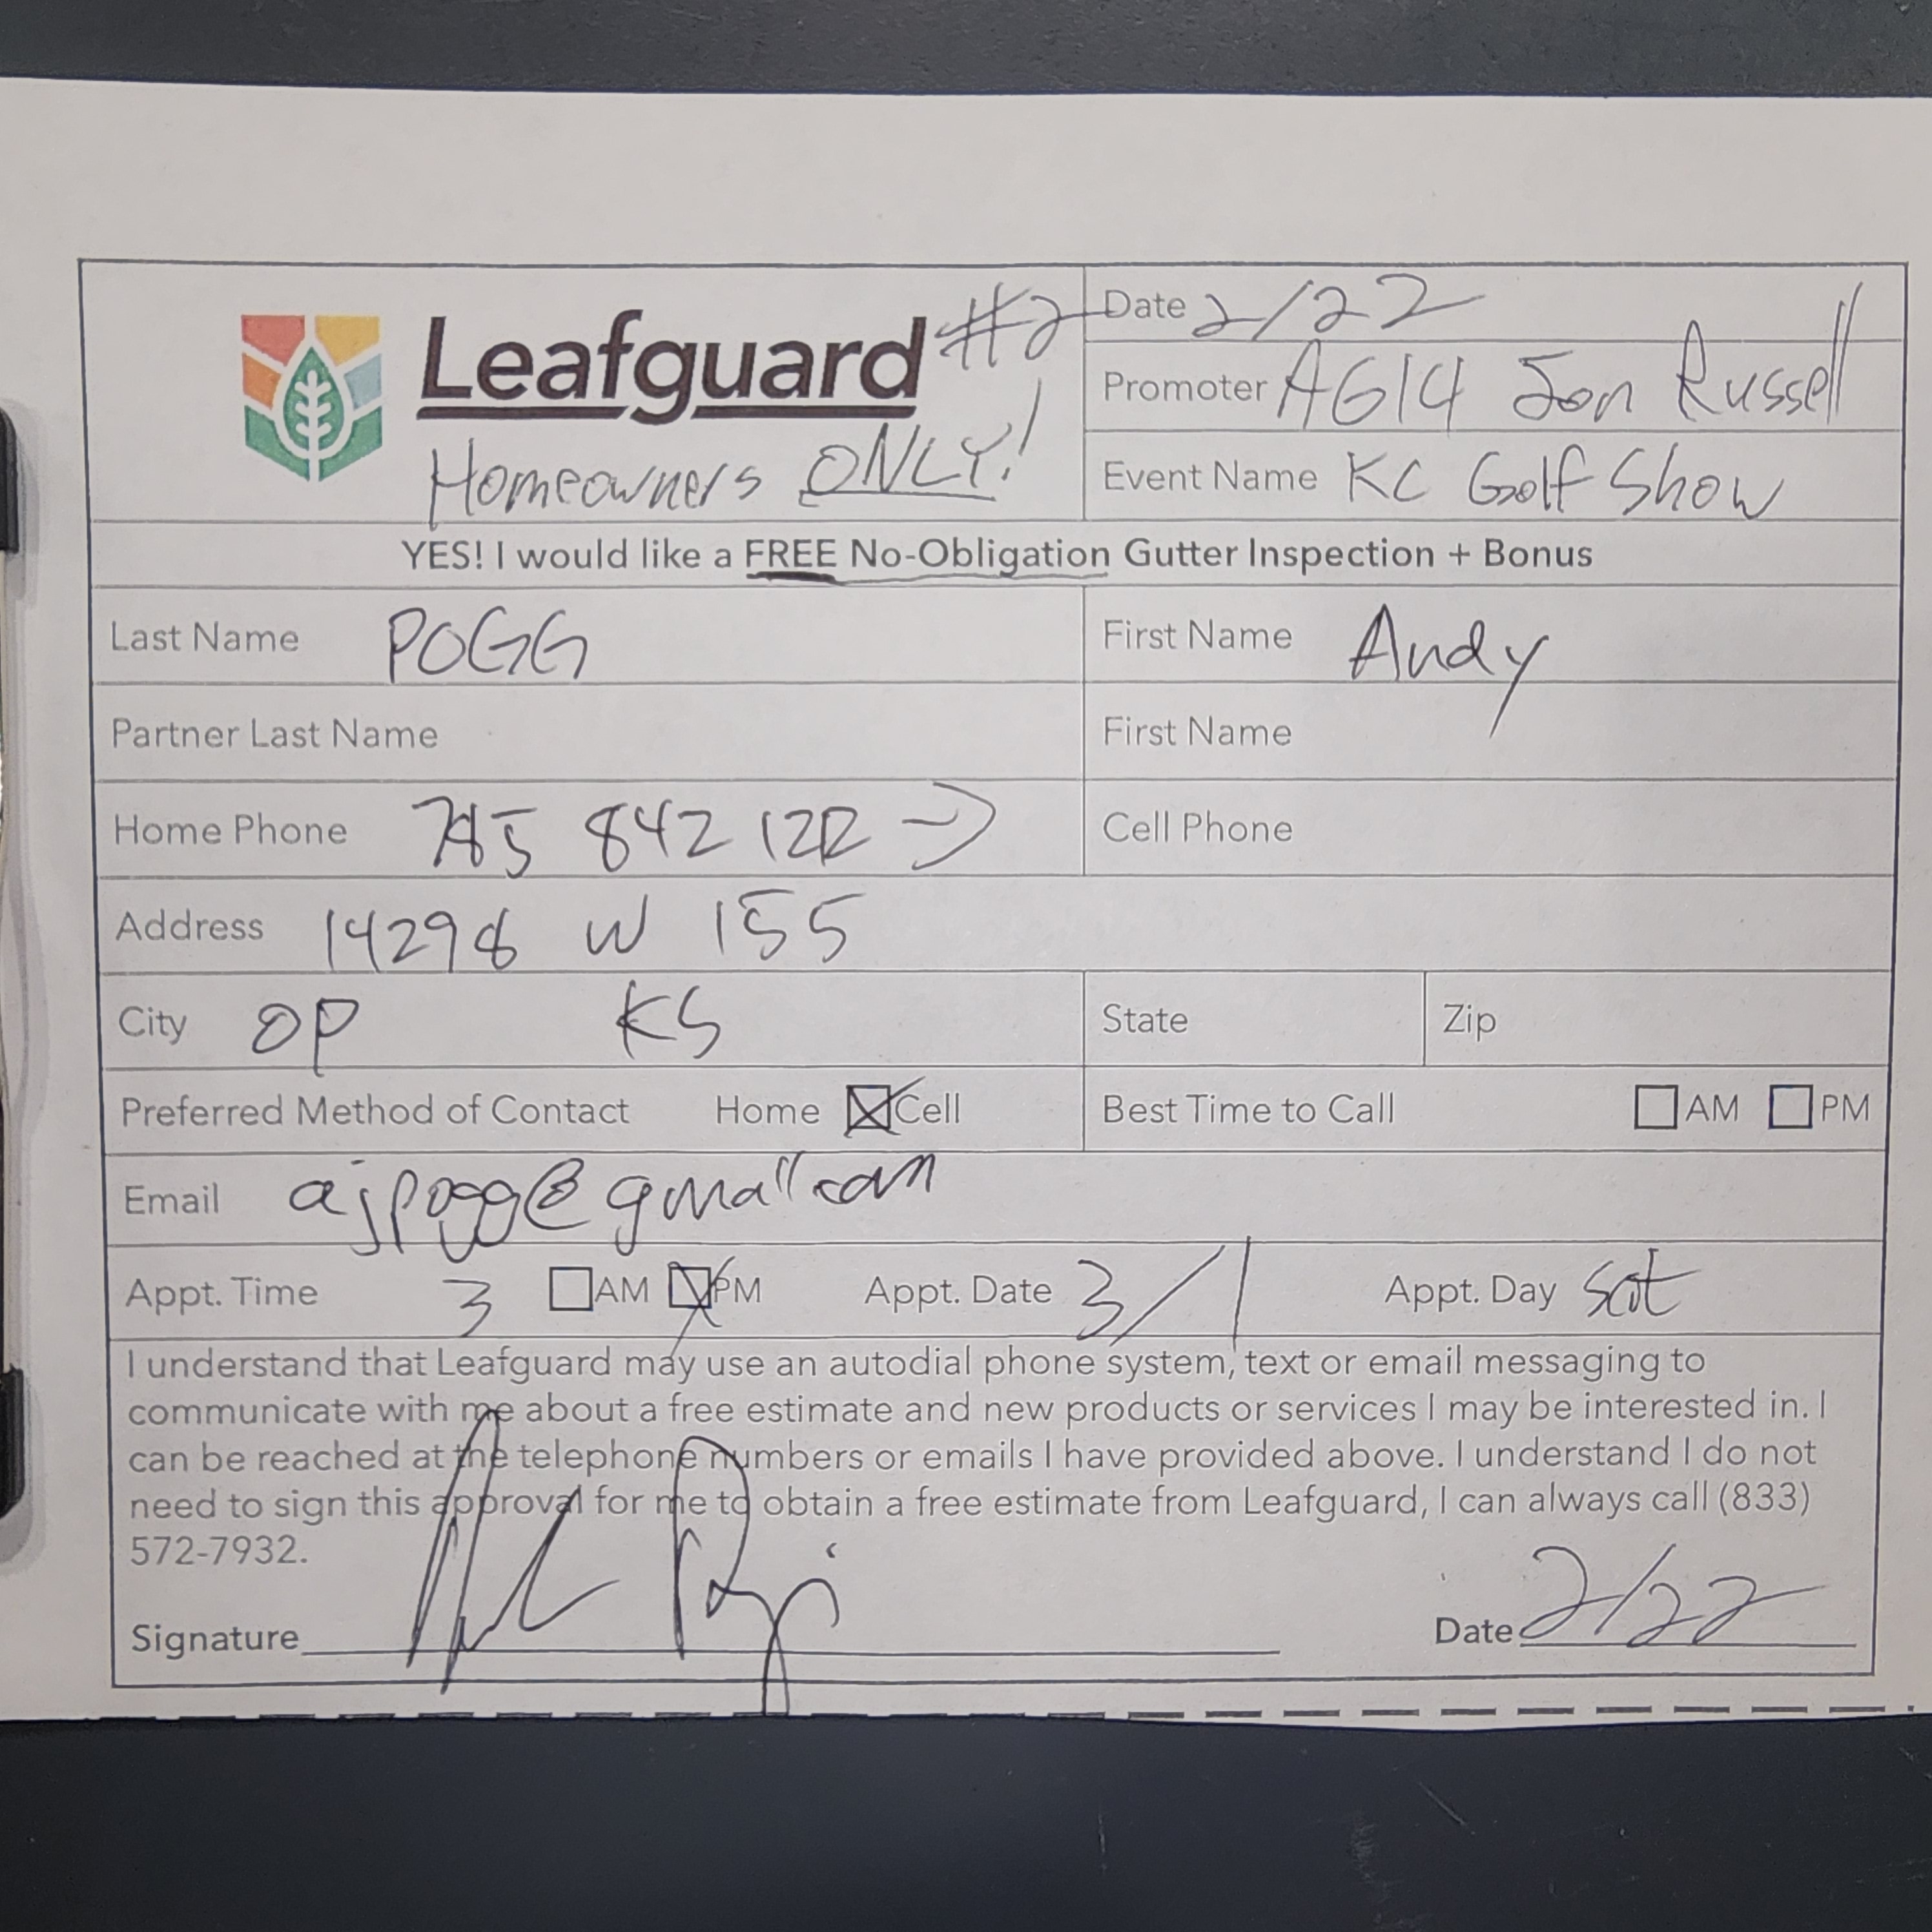 Leafguard #2
Homeowners ONLY!
Date 2/22
Promoter AG14 Jon Russell
Event Name KC Golf Show
YES! I would like a FREE No-Obligation Gutter Inspection + Bonus
Last Name POGG First Name Andy
Partner Last Name First Name
Home Phone 785 842 1212 → Cell Phone
Address 14298 W 155
City OP KS State Zip
Preferred Method of Contact Home ☒ Cell Best Time to Call ☐ AM ☐ PM
Email ajpogg@gmail.com
Appt. Time 3 ☐ AM ☒ PM Appt. Date 3/1 Appt. Day Sat
I understand that Leafguard may use an autodial phone system, text or email messaging to
communicate with me about a free estimate and new products or services I may be interested in. I
can be reached at the telephone numbers or emails I have provided above. I understand I do not
need to sign this approval for me to obtain a free estimate from Leafguard, I can always call (833)
572-7932.
Signature Date 2/22